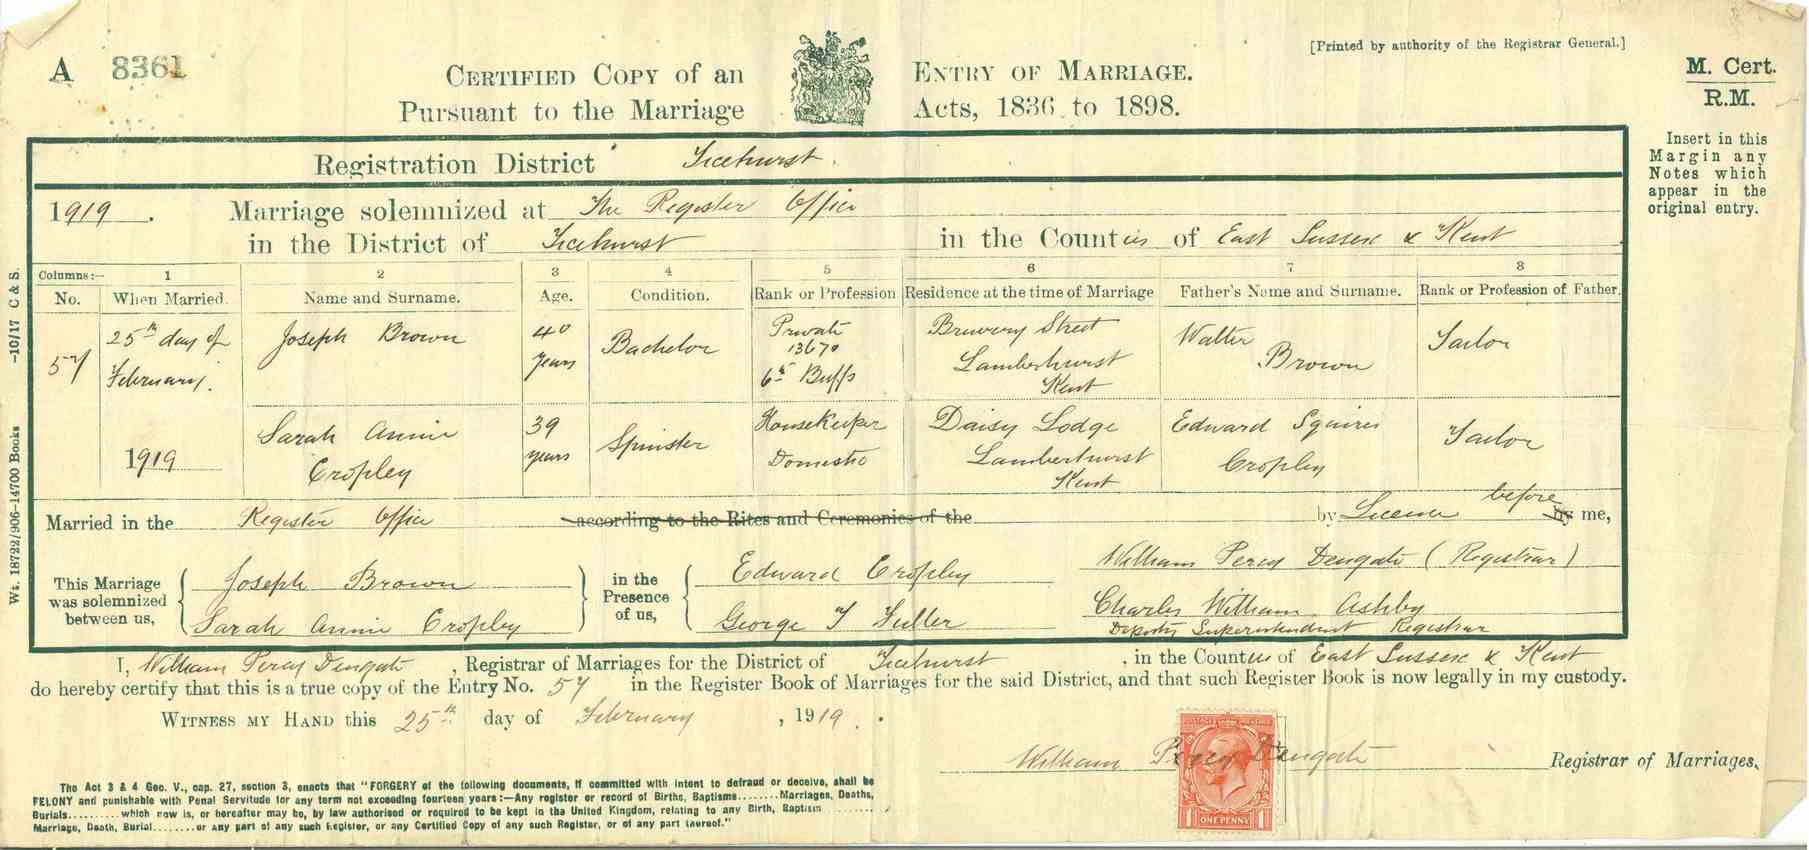 A 8361
CERTIFIED COPY of an ENTRY OF MARRIAGE.
Pursuant to the Marriage Acts, 1836 to 1898.
[Printed by authority of the Registrar General.]
M. Cert.
R.M.
Insert in this
Margin any
Notes which
appear in the
original entry.
Registration District Ticehurst.
1919. Marriage solemnized at The Register Office
in the District of Ticehurst in the Counties of East Sussex & Kent
Columns:— 1 2 3 4 5 6 7 8
No. When Married. Name and Surname. Age. Condition. Rank or Profession Residence at the time of Marriage Father's Name and Surname. Rank or Profession of Father.
57 25th day of February. 1919
Joseph Brown 40 years Bachelor Private 13670 6th Buffs Brewery Street Lamberhurst Kent Walter Brown Tailor
Sarah Annie Cropley 39 years Spinster Housekeeper Domestic Daisy Lodge Lamberhurst Kent Edward Squires Cropley Tailor
Married in the Register Office according to the Rites and Ceremonies of the by Licence before by me,
This Marriage was solemnized between us, Joseph Brown Sarah Annie Cropley
in the Presence of us, Edward Cropley George T Fuller
William Percy Dengate (Registrar)
Charles William Ashby
Deputy Superintendent Registrar
I, William Percy Dengate, Registrar of Marriages for the District of Ticehurst, in the Counties of East Sussex & Kent
do hereby certify that this is a true copy of the Entry No. 57 in the Register Book of Marriages for the said District, and that such Register Book is now legally in my custody.
WITNESS MY HAND this 25th day of February, 1919.
William Percy Dengate Registrar of Marriages.
POSTAGE REVENUE
1 ONE PENNY 1
The Act 3 & 4 Geo. V., cap. 27, section 3, enacts that "FORGERY of the following documents, if committed with intent to defraud or deceive, shall be
FELONY and punishable with Penal Servitude for any term not exceeding fourteen years:—Any register or record of Births, Baptisms........Marriages, Deaths,
Burials.........which now is, or hereafter may be, by law authorised or required to be kept in the United Kingdom, relating to any Birth, Baptism..........
Marriage, Death, Burial........or any part of any such Register, or any Certified Copy of any such Register, or of any part thereof."
Wt. 18722/906—14700 Books —10/17 C & S.